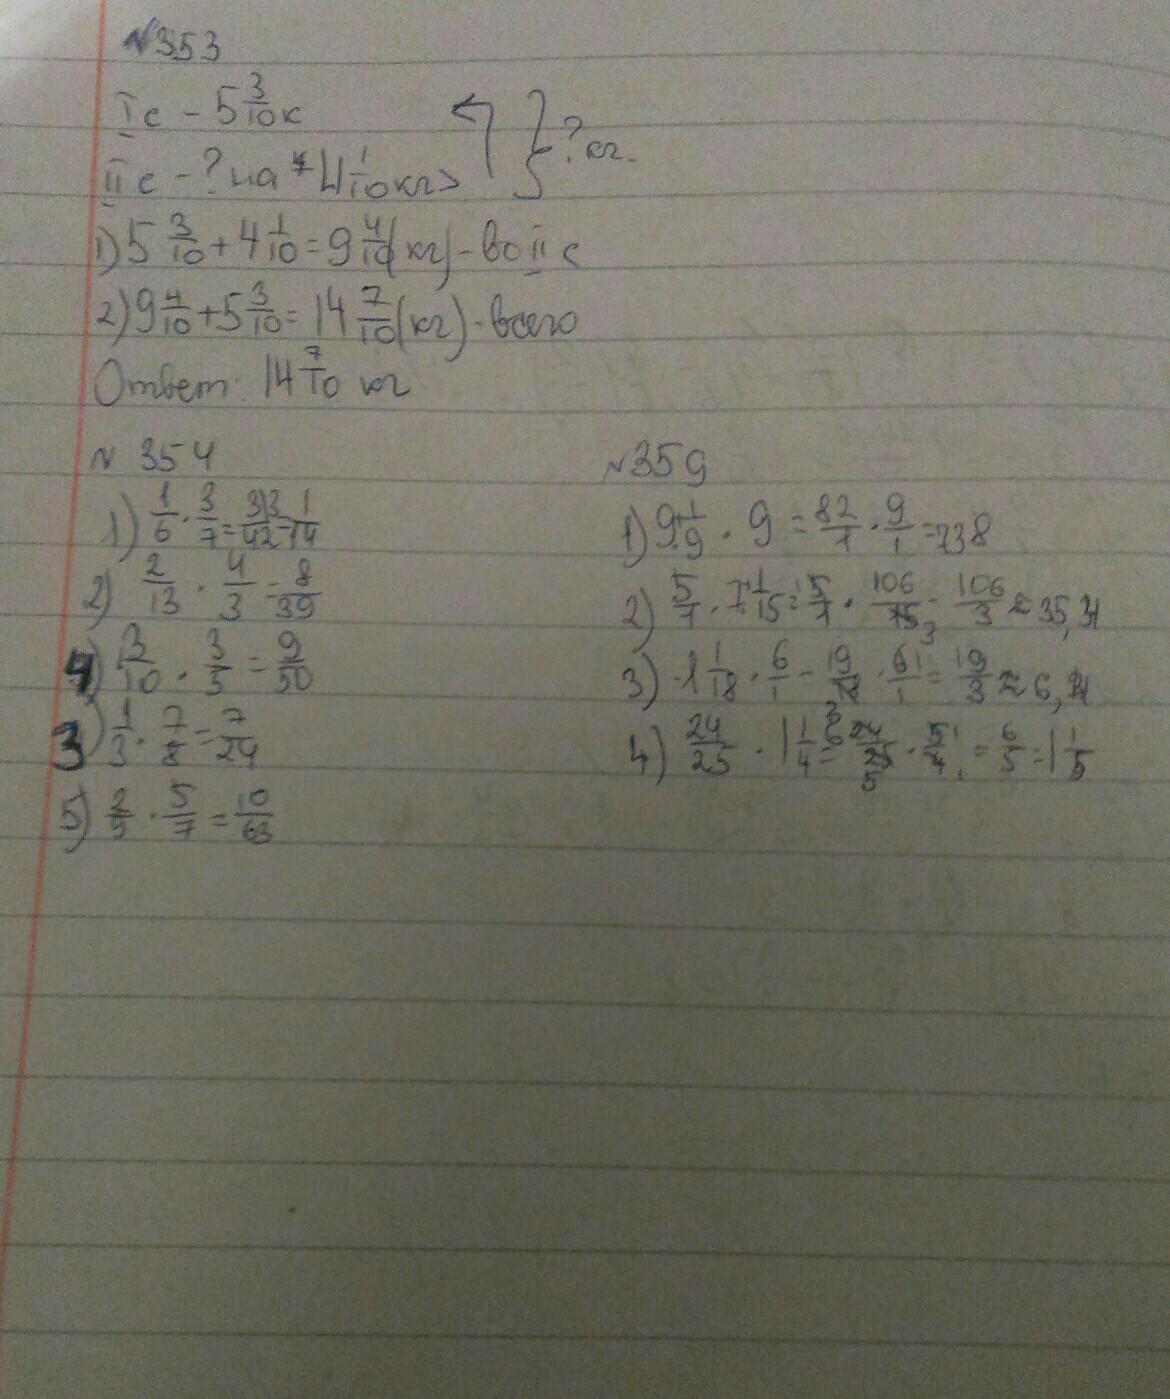 №353
I с - 5 3/10 к
II с - ? на 4 1/10 кг >
} ? кг.
1) 5 3/10 + 4 1/10 = 9 4/10 (кг) - во II с
2) 9 4/10 + 5 3/10 = 14 7/10 (кг) - всего
Ответ: 14 7/10 кг
№ 354
1) 1/6 · 3/7 = 3/42 = 1/14
2) 2/13 · 4/3 = 8/39
4) 3/10 · 3/5 = 9/50
3) 1/3 · 7/8 = 7/24
5) 2/9 · 5/7 = 10/63
№359
1) 9 1/9 · 9 = 82/1 · 9/1 = 738
2) 5/1 · 7 1/15 = 5/1 · 106/15 = 106/3 ≈ 35,
3) 1 1/18 · 6/1 = 19/18 · 6/1 = 19/3 ≈ 6,
4) 24/25 · 1 1/4 = 24/25 · 5/4 = 6/5 = 1 1/5